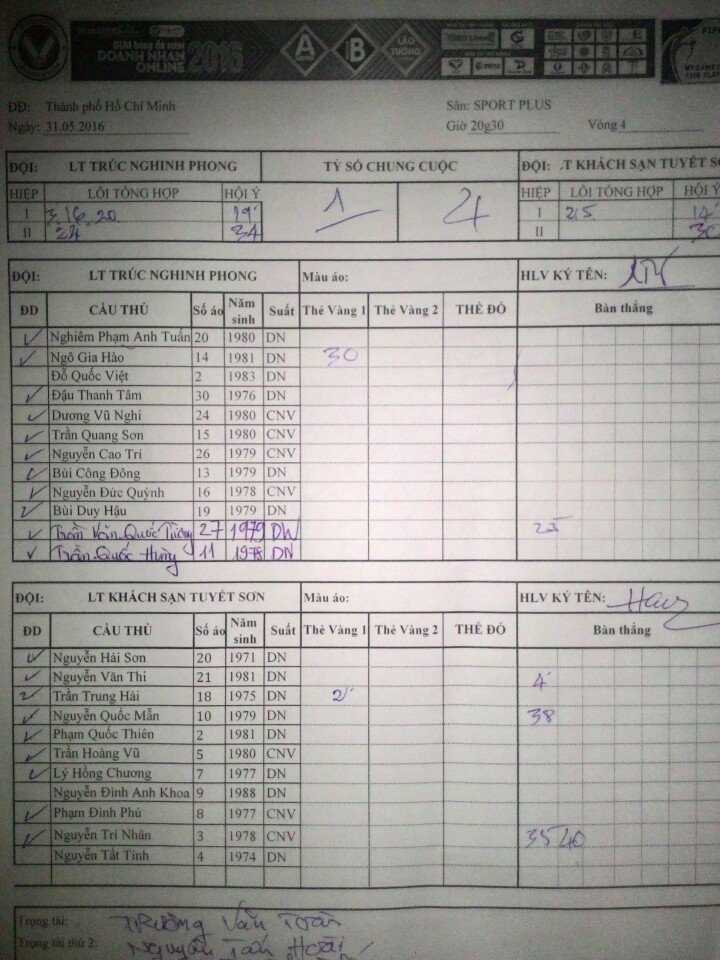 GIẢI bóng đá mini
DOANH NHÂN
ONLINE 2016
A B LÃO TƯỚNG
ĐĐ: Thành phố Hồ Chí Minh Sân: SPORT PLUS
Ngày: 31.05.2016 Giờ 20g30 Vòng 4
ĐỘI: LT TRÚC NGHINH PHONG TỶ SỐ CHUNG CUỘC ĐỘI: .T KHÁCH SẠN TUYẾT SƠ
HIỆP LỖI TỔNG HỢP HỘI Ý 1 4 HIỆP LỖI TỔNG HỢP HỘI Ý
I 3, 16, 20 19' I 2, 5 14'
II 24 34 II 30
ĐỘI: LT TRÚC NGHINH PHONG Màu áo: HLV KÝ TÊN:
ĐD CẦU THỦ Số áo Năm sinh Suất Thẻ Vàng 1 Thẻ Vàng 2 THẺ ĐỎ Bàn thắng
Nghiêm Phạm Anh Tuấn 20 1980 DN
Ngô Gia Hào 14 1981 DN 30
Đỗ Quốc Việt 2 1983 DN
Đậu Thanh Tâm 30 1976 DN
Dương Vũ Nghi 24 1980 CNV
Trần Quang Sơn 15 1980 CNV
Nguyễn Cao Trí 26 1979 CNV
Bùi Công Đông 13 1979 DN
Nguyễn Đức Quỳnh 16 1978 CNV
Bùi Duy Hậu 19 1979 DN
Trần Văn Quốc Tường 27 1979 DN 25
Trần Quốc Hùng 11 1978 DN
ĐỘI: LT KHÁCH SẠN TUYẾT SƠN Màu áo: HLV KÝ TÊN:
ĐD CẦU THỦ Số áo Năm sinh Suất Thẻ Vàng 1 Thẻ Vàng 2 THẺ ĐỎ Bàn thắng
Nguyễn Hải Sơn 20 1971 DN
Nguyễn Văn Thi 21 1981 DN 4'
Trần Trung Hải 18 1975 DN 2'
Nguyễn Quốc Mẫn 10 1979 DN 38
Phạm Quốc Thiên 2 1981 DN
Trần Hoàng Vũ 5 1980 CNV
Lý Hồng Chương 7 1977 DN
Nguyễn Đình Anh Khoa 9 1988 DN
Phạm Đình Phú 8 1977 CNV
Nguyễn Trí Nhân 3 1978 CNV 35 40
Nguyễn Tất Tinh 4 1974 DN
Trọng tài: Trương Văn Toản
Trọng tài thứ 2: Nguyễn Tan Hoài